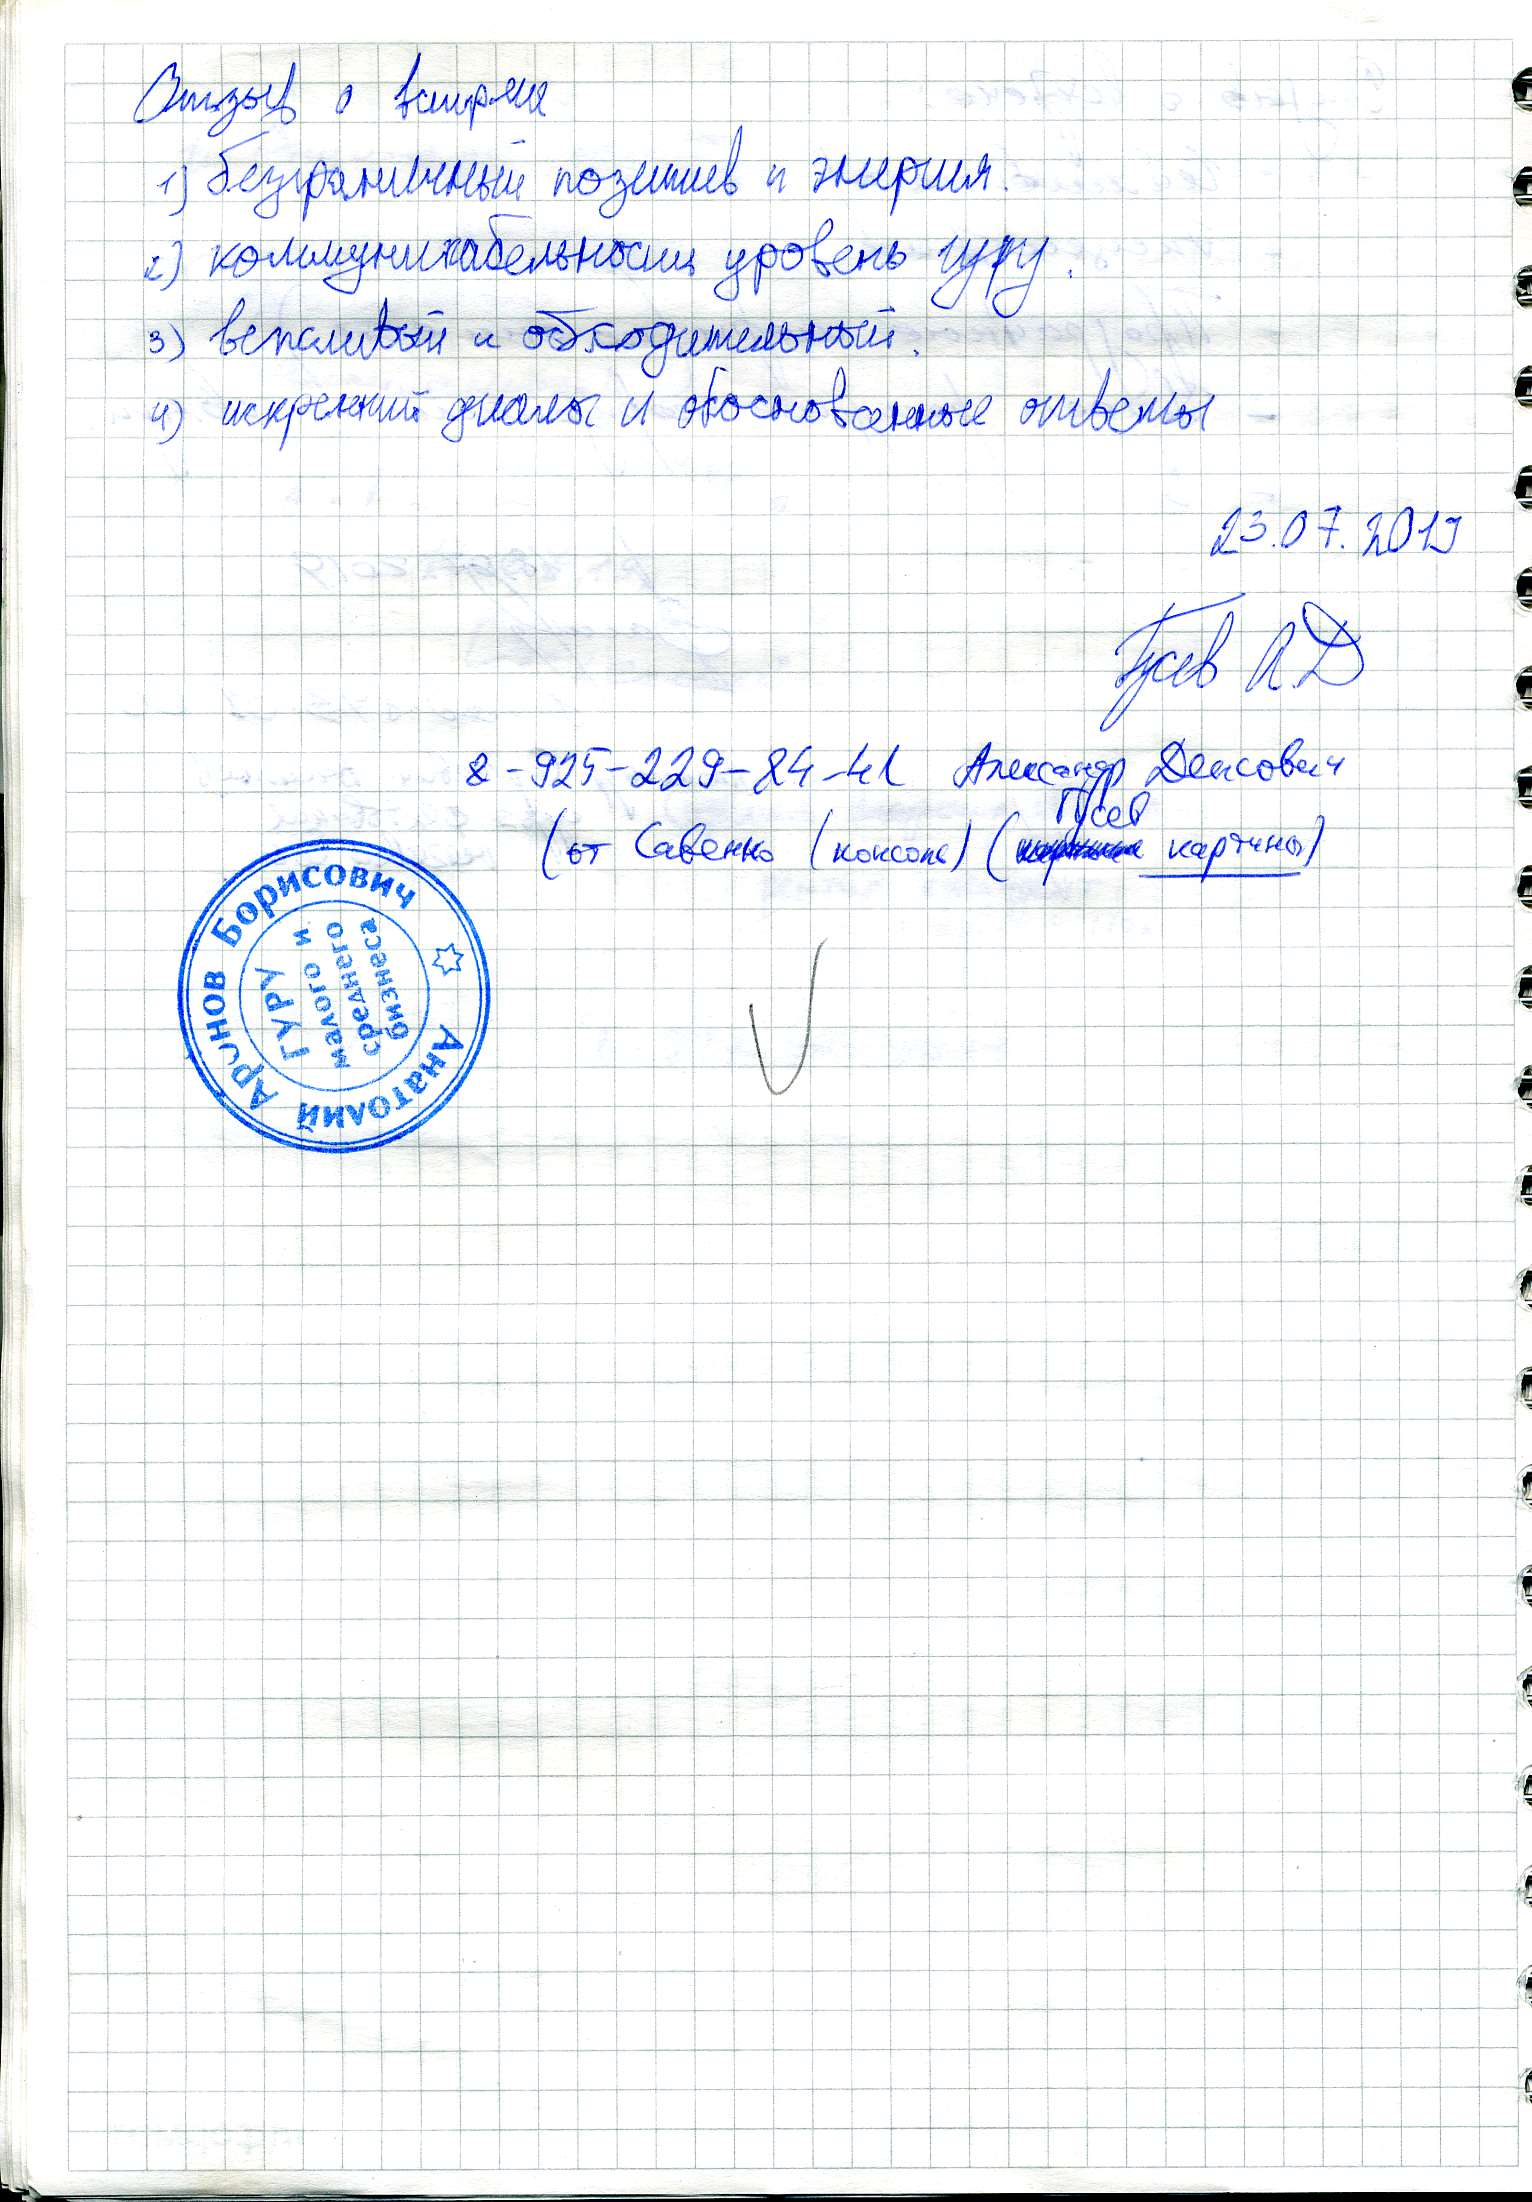 Отзыв о встречи
1) безграничный позитив и энергия.
2) коммуникабельность уровень гуру.
3) вежливый и обходительный.
4) искренний диалог и обоснованные ответы
23.07.2019
Гусев А.Д
8-925-229-84-41 Александр Денисович
Гусев
(от Савенко (консоль) ( картины)
Анатолий Аронов Борисович
ГУРУ
малого и
среднего
бизнеса